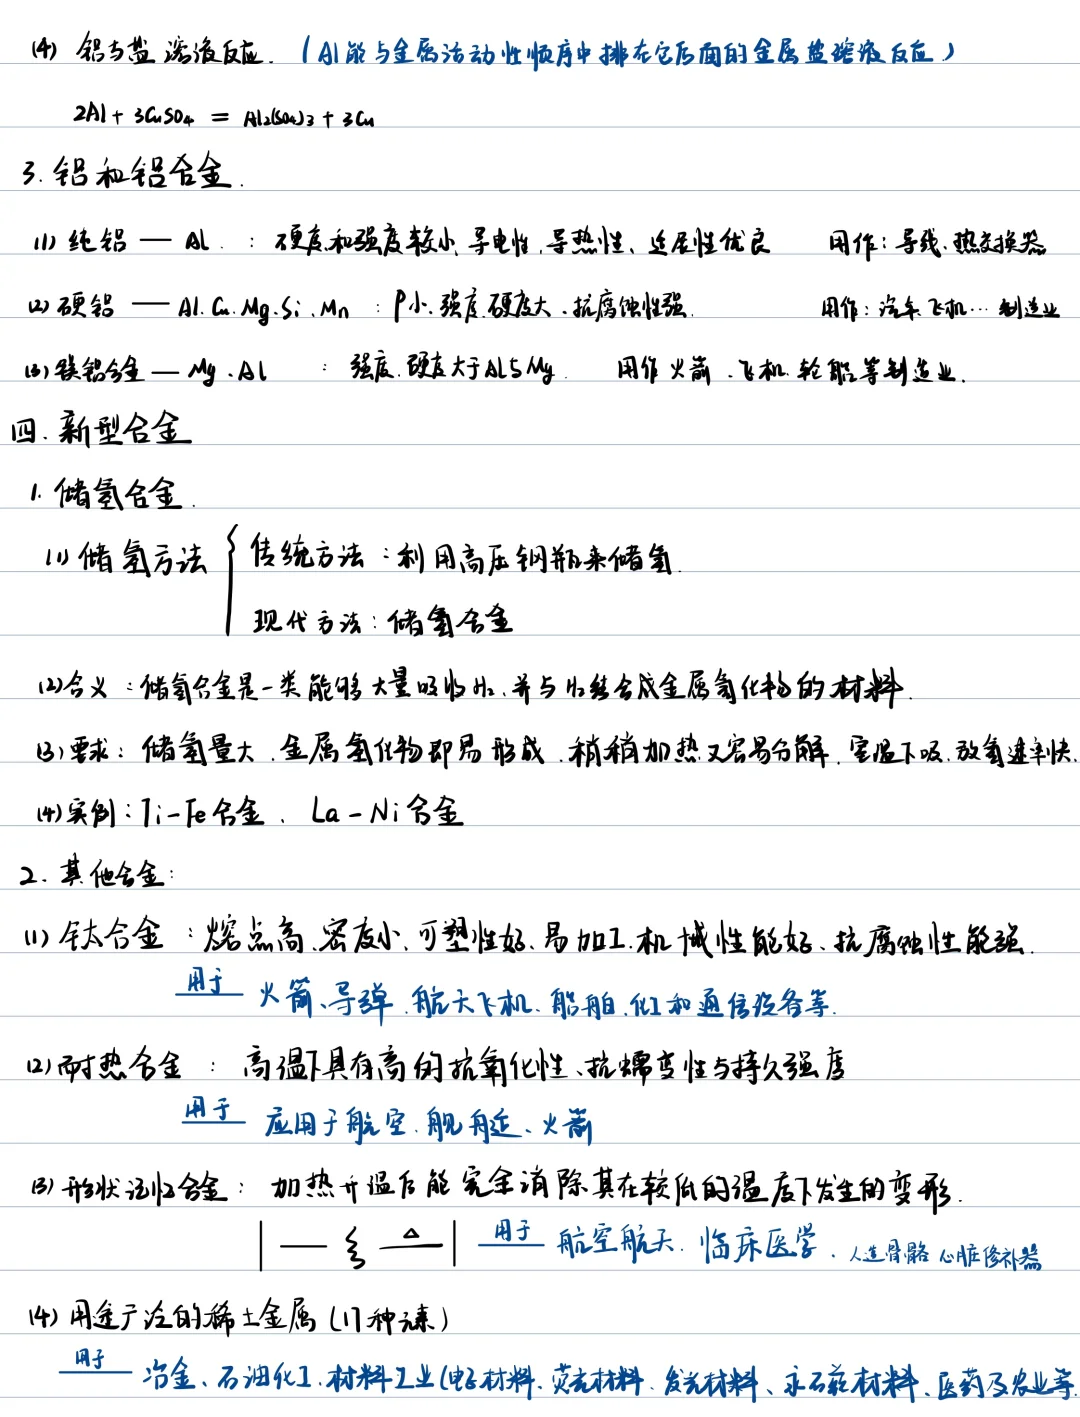 (4) 铝与盐溶液反应.（Al能与金属活动性顺序中排在它后面的金属盐溶液反应）
2Al + 3CuSO4 = Al2(SO4)3 + 3Cu
3. 铝和铝合金.
(1) 纯铝 — Al. : 硬度和强度较小、导电性、导热性、延展性优良 用作: 导线、热交换器
(2) 硬铝 — Al. Cu. Mg. Si. Mn : ρ小、强度、硬度大、抗腐蚀性强. 用作: 汽车、飞机…制造业
(3) 镁铝合金 — Mg. Al : 强度、硬度大于Al与Mg. 用作火箭、飞机、轮船等制造业.
四. 新型合金
1. 储氢合金.
(1) 储氢方法 { 传统方法: 利用高压钢瓶来储氢.
现代方法: 储氢合金
(2) 含义: 储氢合金是一类能够大量吸收H2、并与H2结合成金属氢化物的材料.
(3) 要求: 储氢量大、金属氢化物即易形成、稍稍加热又容易分解、室温下吸、放氢速率快.
(4) 实例: Ti-Fe合金、La-Ni合金
2. 其他合金:
(1) 钛合金: 熔点高、密度小、可塑性好、易加工、机械性能好、抗腐蚀性能强.
用于 火箭、导弹、航天飞机、船舶、化工和通信设备等.
(2) 耐热合金: 高温下具有高的抗氧化性、抗蠕变性与持久强度
用于 应用于航空、舰艇、火箭
(3) 形状记忆合金: 加热升温后能完全消除其在较低的温度下发生的变形.
| — ⺀ △ | 用于 航空航天. 临床医学、人造骨骼 心脏修补器
(4) 用途广泛的稀土金属 (17种元素)
用于 冶金、石油化工、材料工业(电子材料、荧光材料、发光材料、永磁材料、医药及农业等.